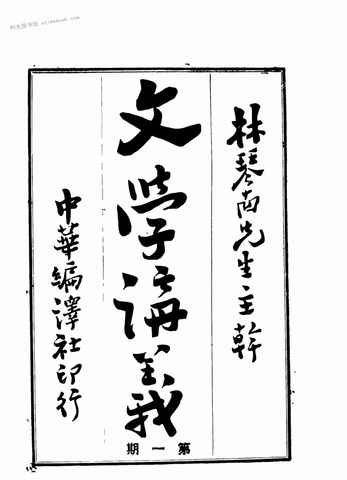 林琴南先生主幹
文學講義
第一期
中華編譯社印行